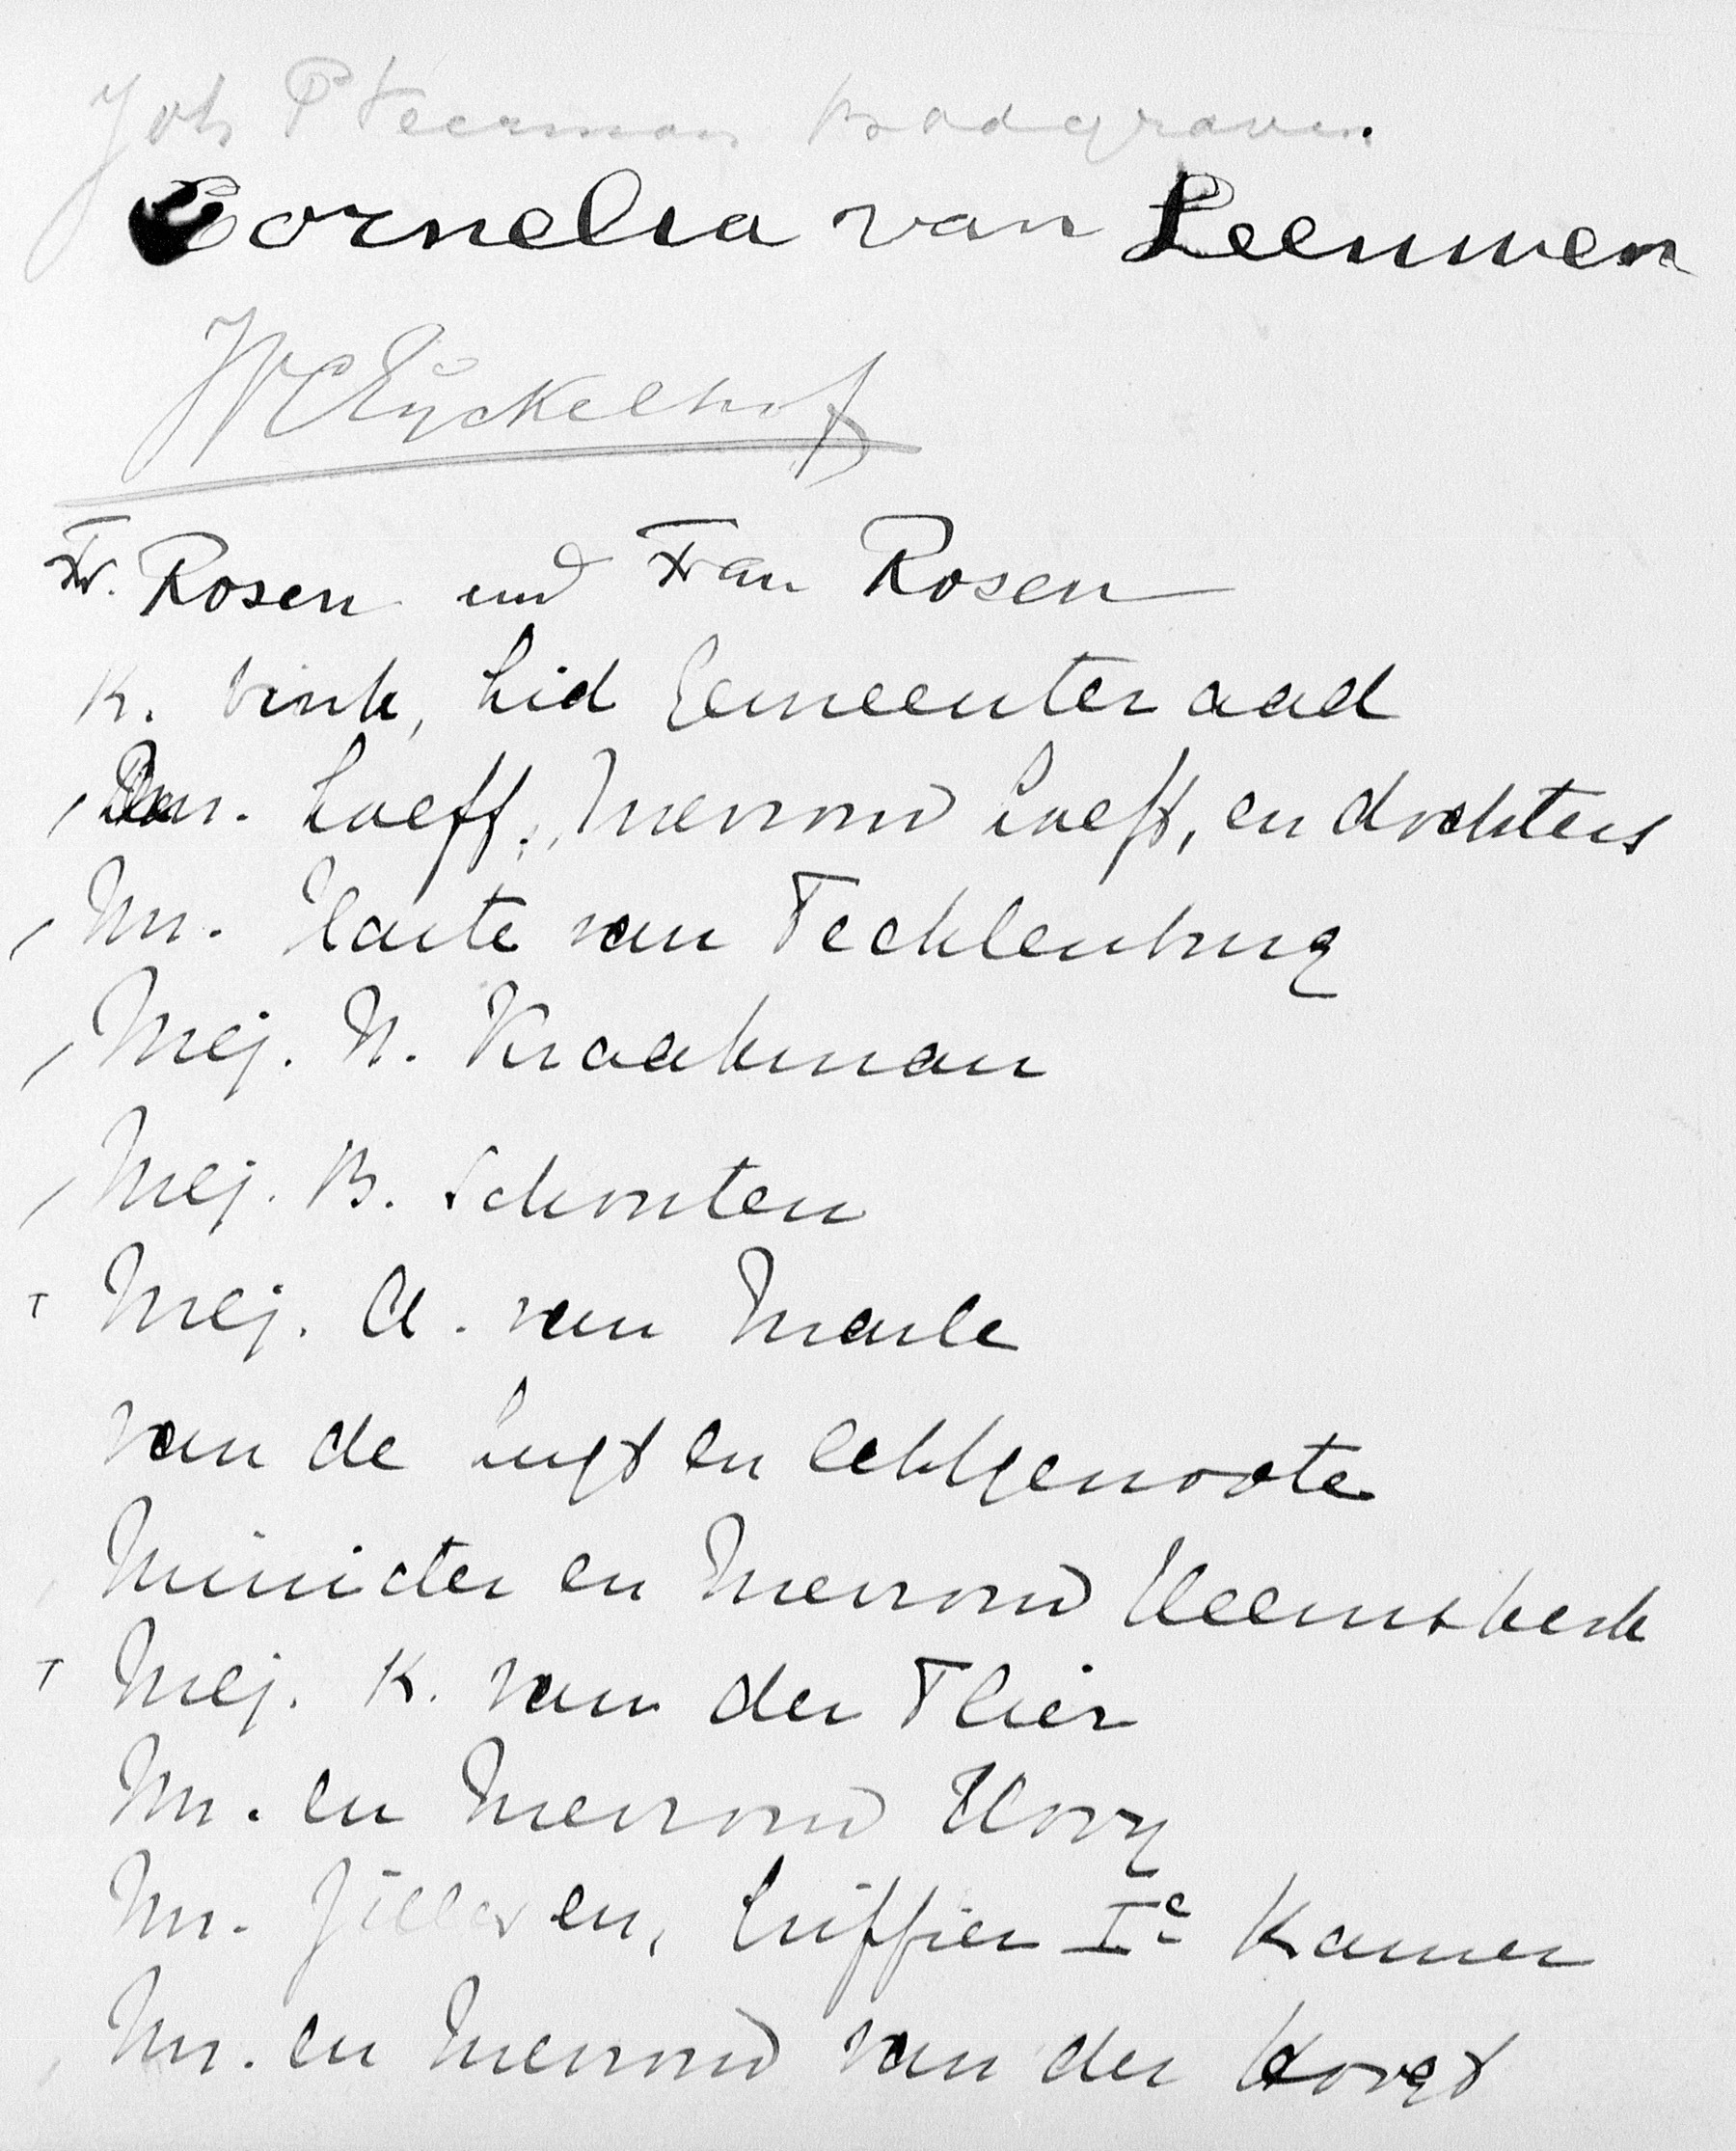 Joh P Veerman Bodegraven.
Cornelia van Leeuwen
Eyckelhof
Fr. Rosen und Frau Rosen
K. Vink, Lid Gemeenteraad
Mr. Loeff, Mevrouw Loeff, en dochters
Mr. Harte van Tecklenburg
Mej. N. Kraakman
Mej. B. Schouten
Mej. A. van Marle
van de en echtgenoote
Minister en Mevrouw Heemskerk
Mej. K. van der Flier
Mr. en Mevrouw Hovy
Mr. en, Griffier Ie Kamer
Mr. en Mevrouw van der Hoogt